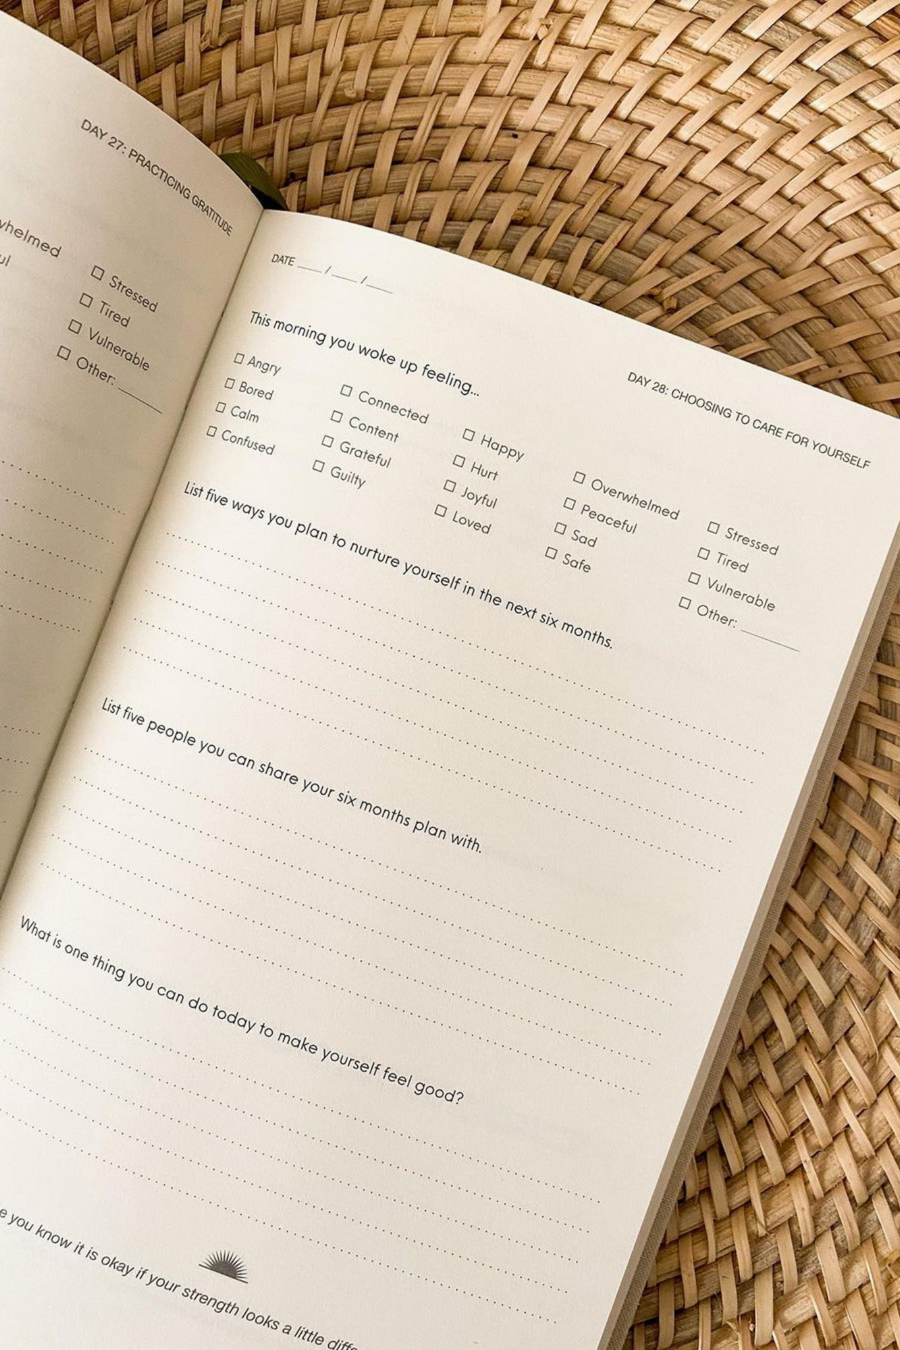 DAY 27: PRACTICING GRATITUDE
☐ Stressed
☐ Tired
☐ Vulnerable
☐ Other: ______
DATE ____ / ____ /____
DAY 28: CHOOSING TO CARE FOR YOURSELF
This morning you woke up feeling...
☐ Angry ☐ Connected ☐ Happy ☐ Overwhelmed ☐ Stressed
☐ Bored ☐ Content ☐ Hurt ☐ Peaceful ☐ Tired
☐ Calm ☐ Grateful ☐ Joyful ☐ Sad ☐ Vulnerable
☐ Confused ☐ Guilty ☐ Loved ☐ Safe ☐ Other: ______
List five ways you plan to nurture yourself in the next six months.
List five people you can share your six months plan with.
What is one thing you can do today to make yourself feel good?
you know it is okay if your strength looks a little